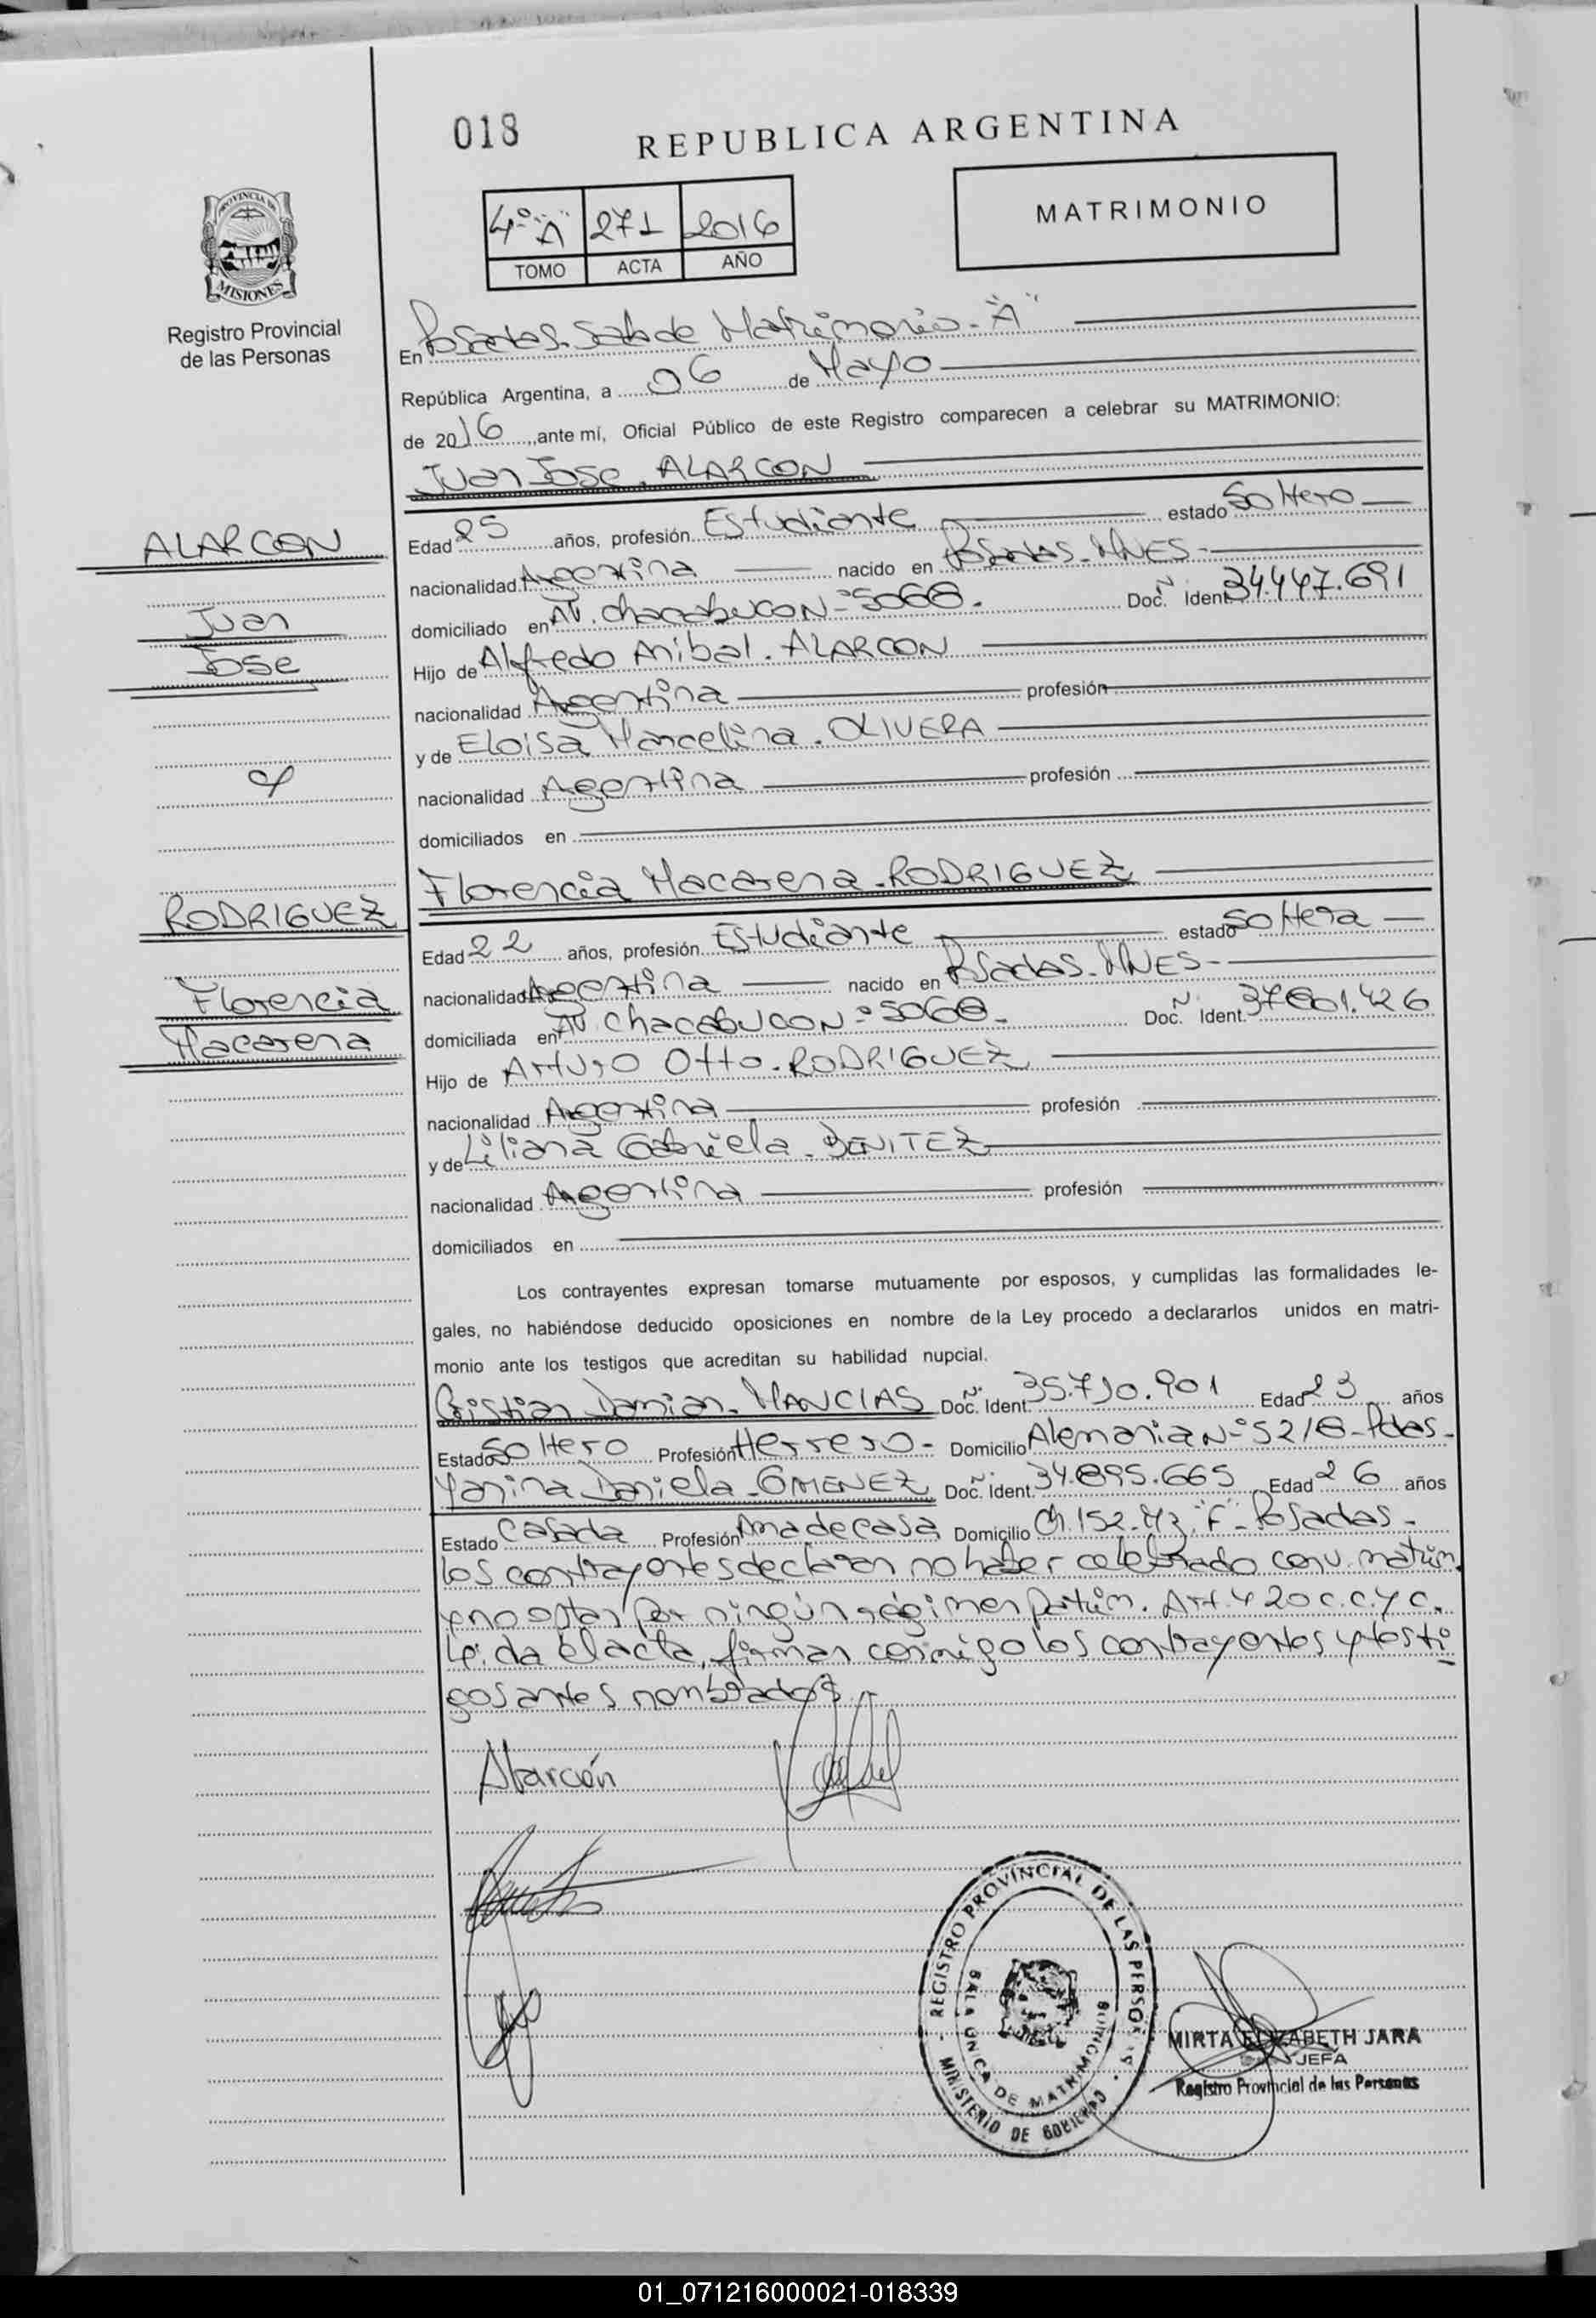 018
REPUBLICA ARGENTINA
PROVINCIA DE
MISIONES
Registro Provincial
de las Personas
4° "A" 271 2016
TOMO ACTA AÑO
MATRIMONIO
En Posadas. Sala de Matrimonio - "A"
República Argentina, a 06 de Mayo
de 2016, ante mí, Oficial Público de este Registro comparecen a celebrar su MATRIMONIO:
Juan Jose. ALARCON
ALARCON
Juan
Jose
Edad 25 años, profesión Estudiante estado Soltero
nacionalidad Argentina nacido en Posadas - MNES -
domiciliado en Av. Chacabuco N° 5068. Doc. N° Ident. 34.447.691
Hijo de Alfredo Anibal. ALARCON
nacionalidad Argentina profesión
y de Eloisa Marcelina. OLIVERA
nacionalidad Argentina profesión
domiciliados en
y
RODRIGUEZ
Florencia
Macarena
Florencia Macarena. RODRIGUEZ
Edad 22 años, profesión Estudiante estado Soltera
nacionalidad Argentina nacido en Posadas - MNES -
domiciliada en Av. Chacabuco N° 5068 - Doc. N° Ident. 37.801.426
Hijo de Arturo Otto. RODRIGUEZ
nacionalidad Argentina profesión
y de Liliana Gabriela. BENITEZ
nacionalidad Argentina profesión
domiciliados en
Los contrayentes expresan tomarse mutuamente por esposos, y cumplidas las formalidades le-
gales, no habiéndose deducido oposiciones en nombre de la Ley procedo a declararlos unidos en matri-
monio ante los testigos que acreditan su habilidad nupcial.
Cristian Damian. MANCIAS Doc. N° Ident. 35.710.901 Edad 23 años
Estado Soltero Profesión Herrero - Domicilio Alemania N° 5218 - Pdas -
Yanina Daniela. GIMENEZ Doc. N° Ident. 34.895.665 Edad 26 años
Estado Casada Profesión Ama de casa Domicilio Ch. 152 - Mz. "F" - Posadas -
Los contrayentes declaran no haber celebrado conv. matrim.
y no optan por ningún régimen patrim. Art. 420 C.C.y C.
Leida el acta, firman conmigo los contrayentes y testi
gos antes nombrados -
Alarcón
REGISTRO PROVINCIAL DE LAS PERSONAS
SALA UNICA DE MATRIMONIOS
MINISTERIO DE GOBIERNO
MIRTA ELIZABETH JARA
JEFA
Registro Provincial de las Personas
01_071216000021-018339